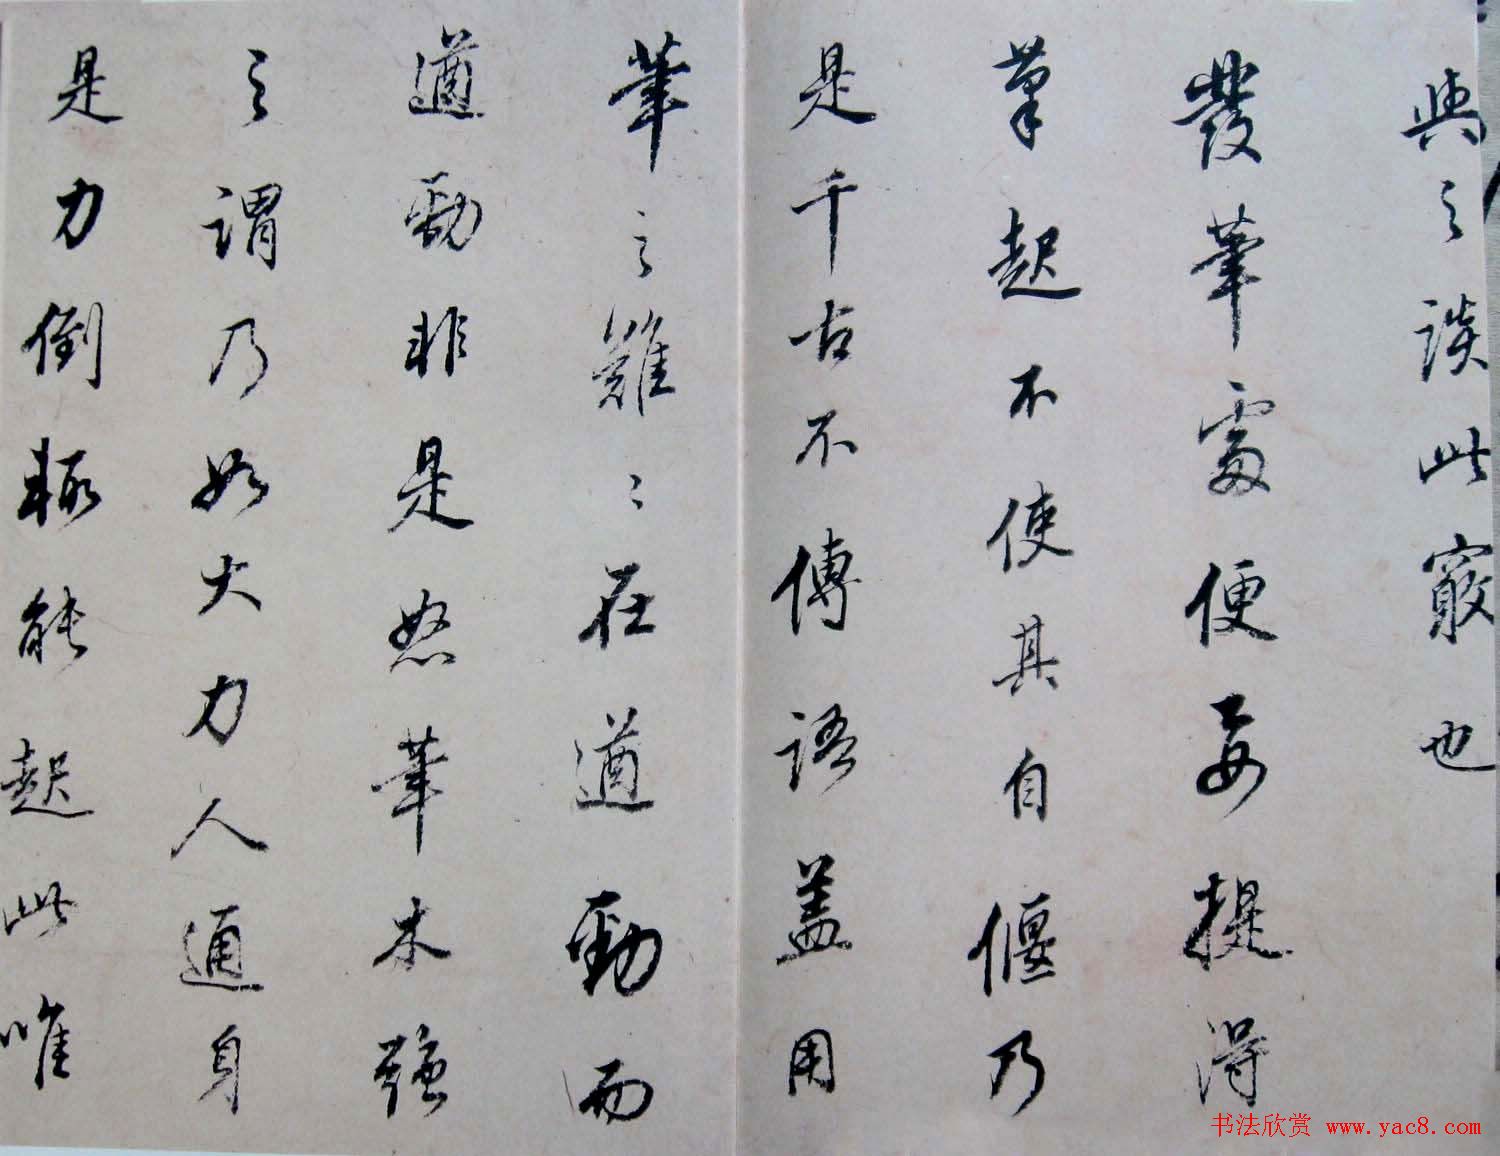 與之談此竅也
發筆處便要提得
筆起不使其自偃乃
是千古不傳語蓋用
筆之難難在遒勁而
遒勁非是怒筆木強
之謂乃如大力人通身
是力倒輒能起此唯
书法欣赏 www.yac8.com